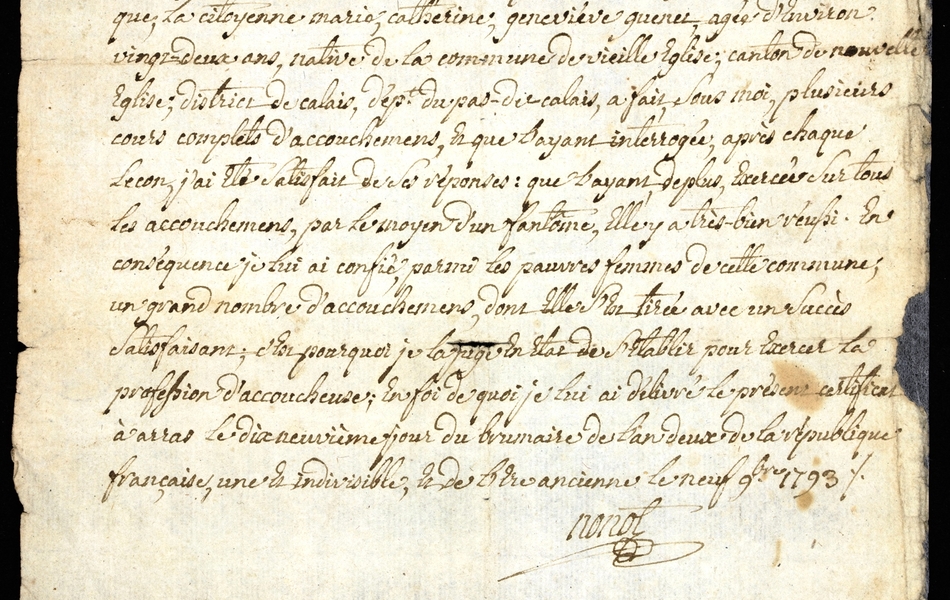 que, la citoyenne marie, catherine, geneviéve quenet, agée d'Environ
vingt-deux ans, native de la commune de vieille Eglise; canton de nouvelle
Eglise; district de calais, dépt. du pas-de-calais, a fait, sous moi, plusieurs
cours complets d'accouchemens, Et que l'ayant interrogée, après chaque
Lecon, j'ai Eté Satisfait de Ses réponses: que l'ayant, deplus, Exercée Sur tous
Les accouchemens, par le moyen d'un fantôme, Elle y a très-bien réussi. En
conséquence je lui ai confié, parmi les pauvres femmes de cette commune;
un grand nombre d'accouchemens, dont Elle S'Est tirée avec un Succès
Satisfaisant; c'Est pourquoi je la juge En Etat de S'Etablir pour Exercer La
profession d'accoucheuse; En foi de quoi je lui ai délivré le présent certificat
à arras le dix neuvième jour du brumaire de l'an deux de la république
française, une Et indivisible, Et de l'Ere ancienne le neuf 9bre 1793 ./.
nonot